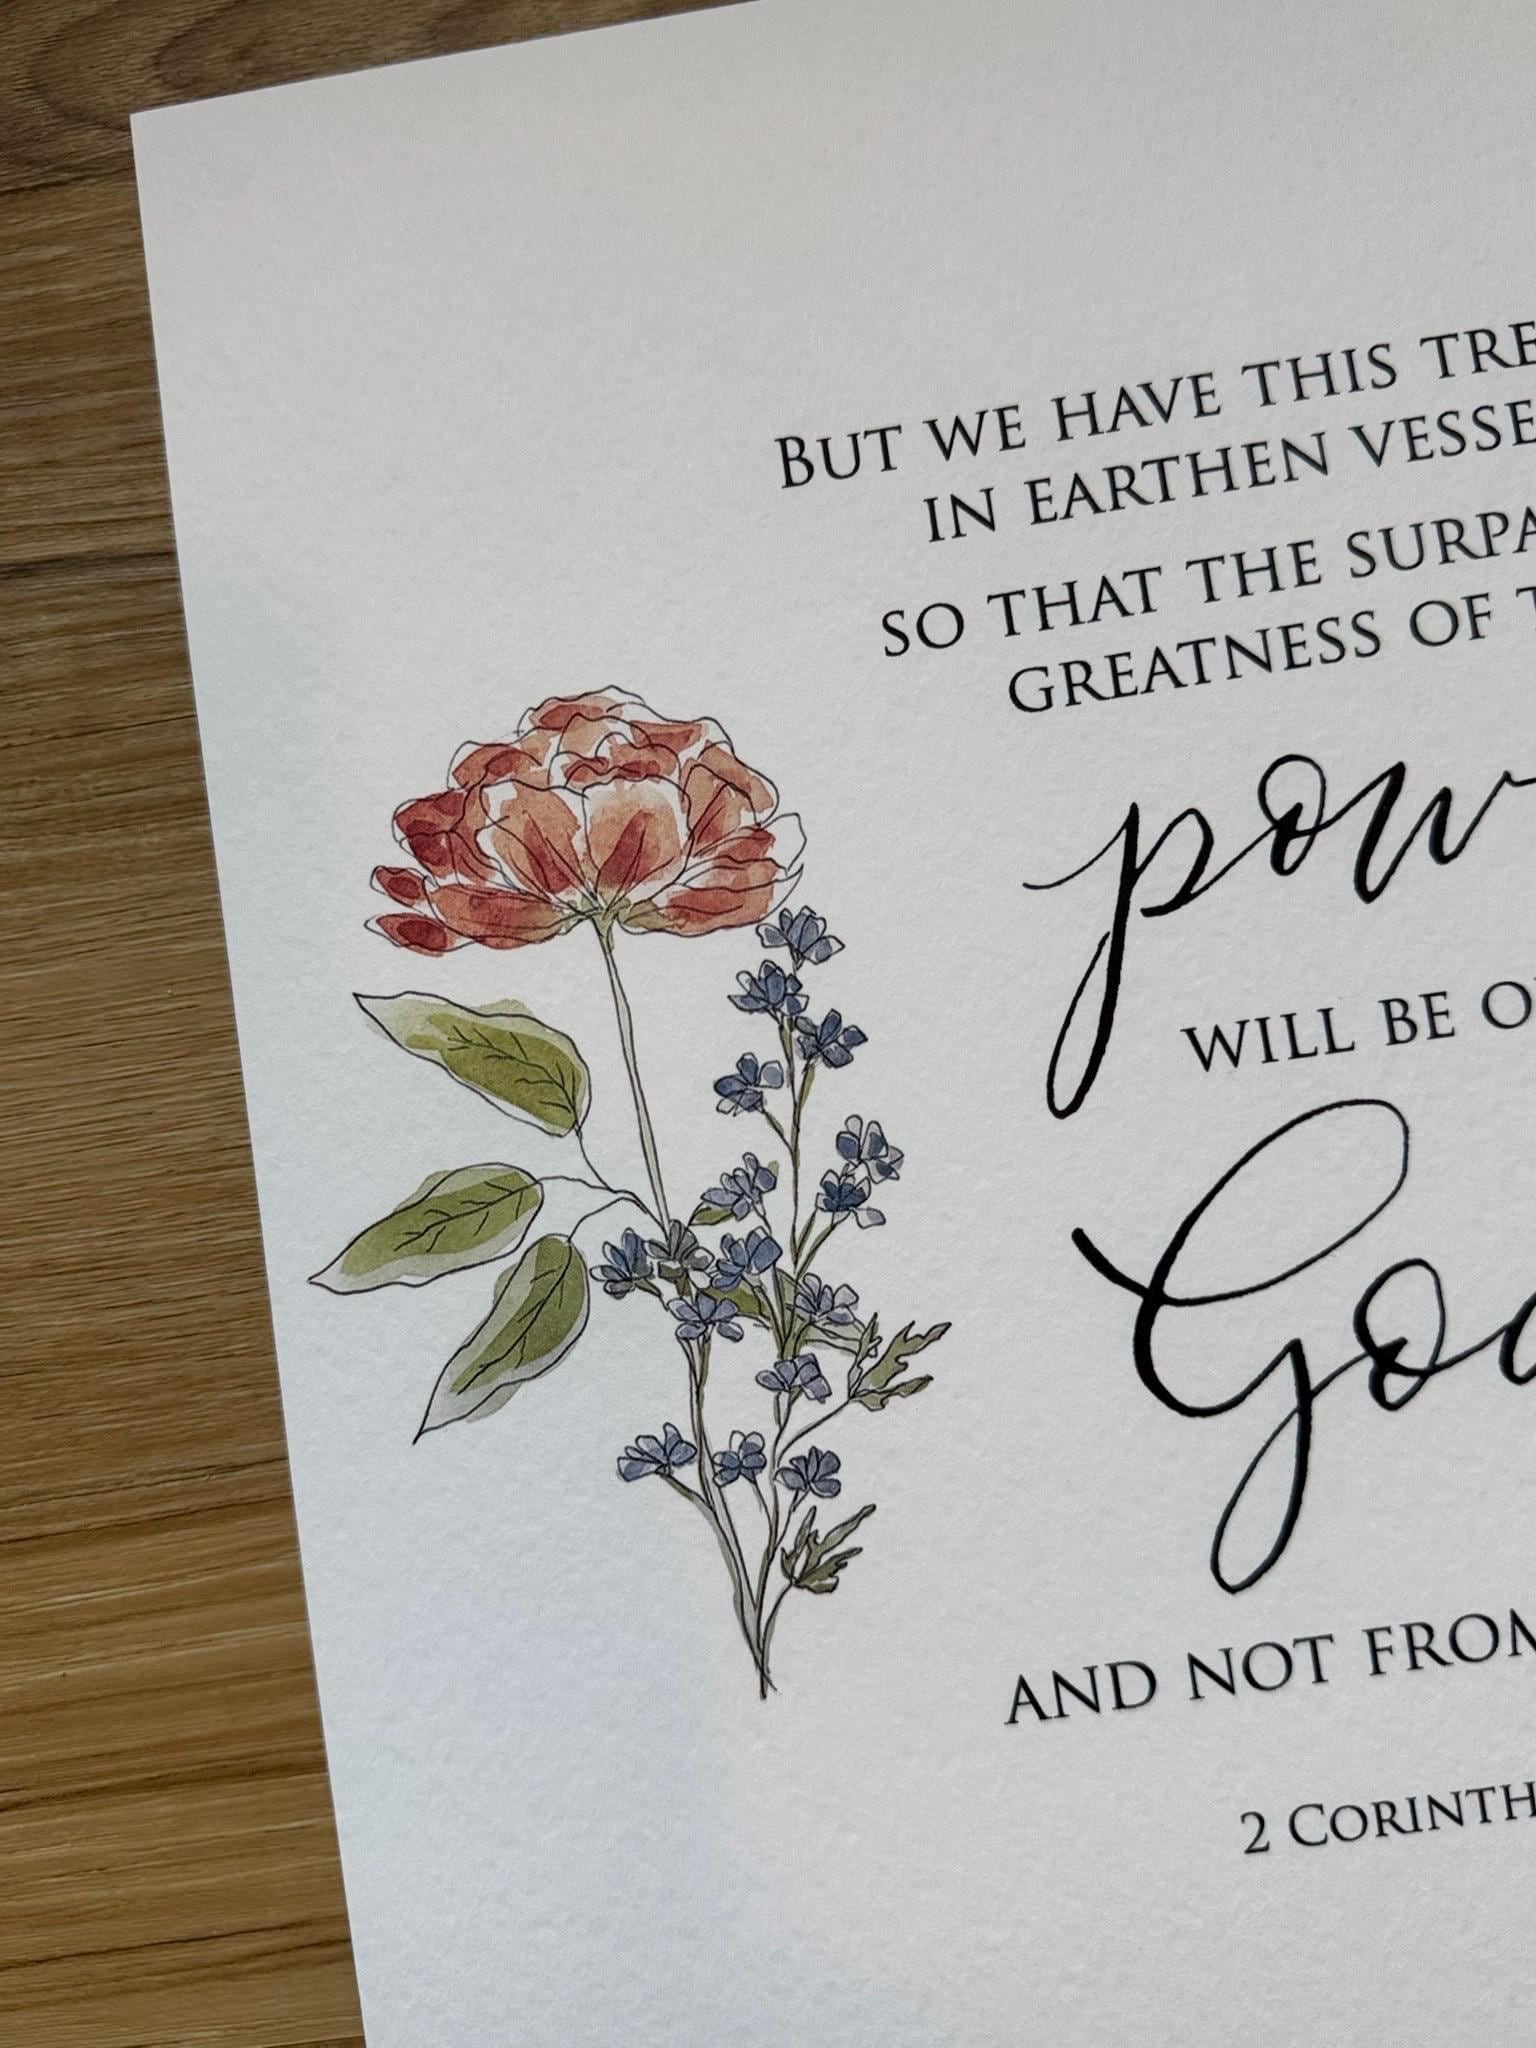 BUT WE HAVE THIS TRE
IN EARTHEN VESSE
SO THAT THE SURPA
GREATNESS OF T
pow
WILL BE O
God
AND NOT FROM
2 CORINTH